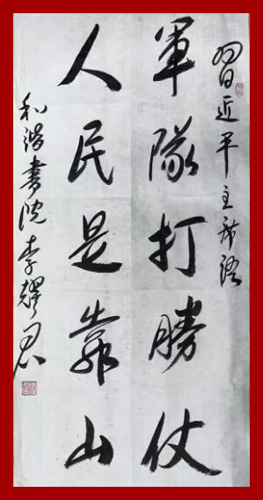 習近平主席語
軍隊打勝仗
人民是靠山
和諧書院李耀君